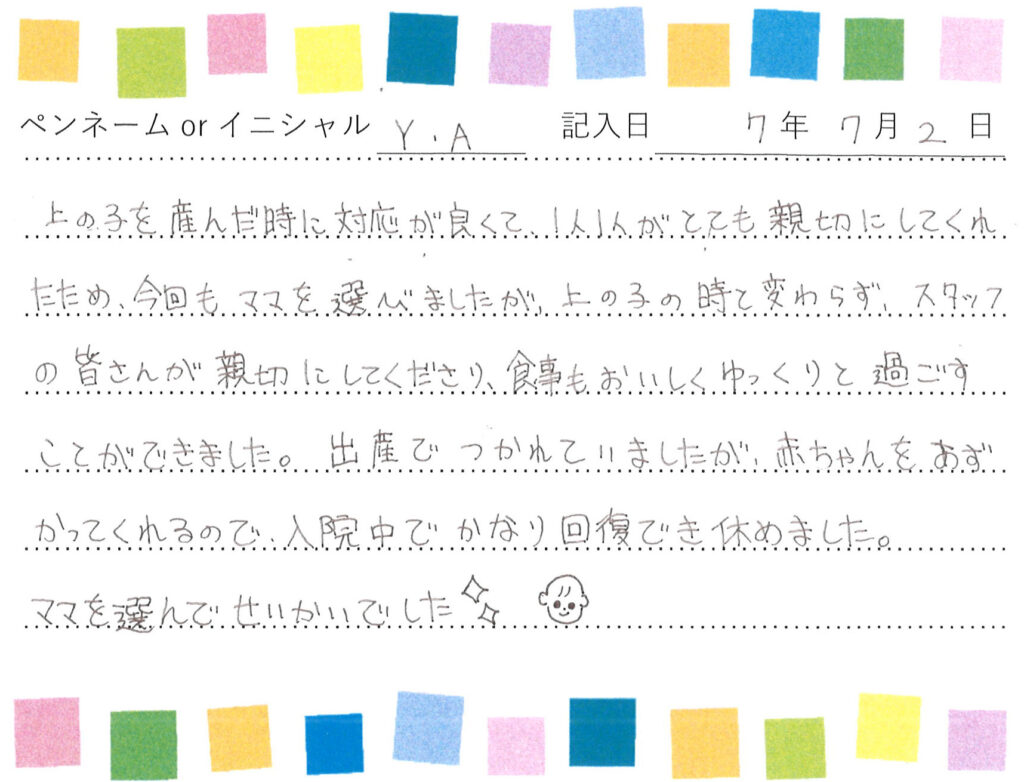 ペンネーム or イニシャル Y.A 記入日 7年 7月 2日
上の子を産んだ時に対応が良くて、1人1人がとても親切にしてくれ
たため、今回もママを選びましたが、上の子の時と変わらず、スタッフ
の皆さんが親切にしてくださり、食事もおいしくゆっくりと過ごす
ことができました。出産でつかれていましたが、赤ちゃんをあず
かってくれるので、入院中でかなり回復でき休めました。
ママを選んでせいかいでした